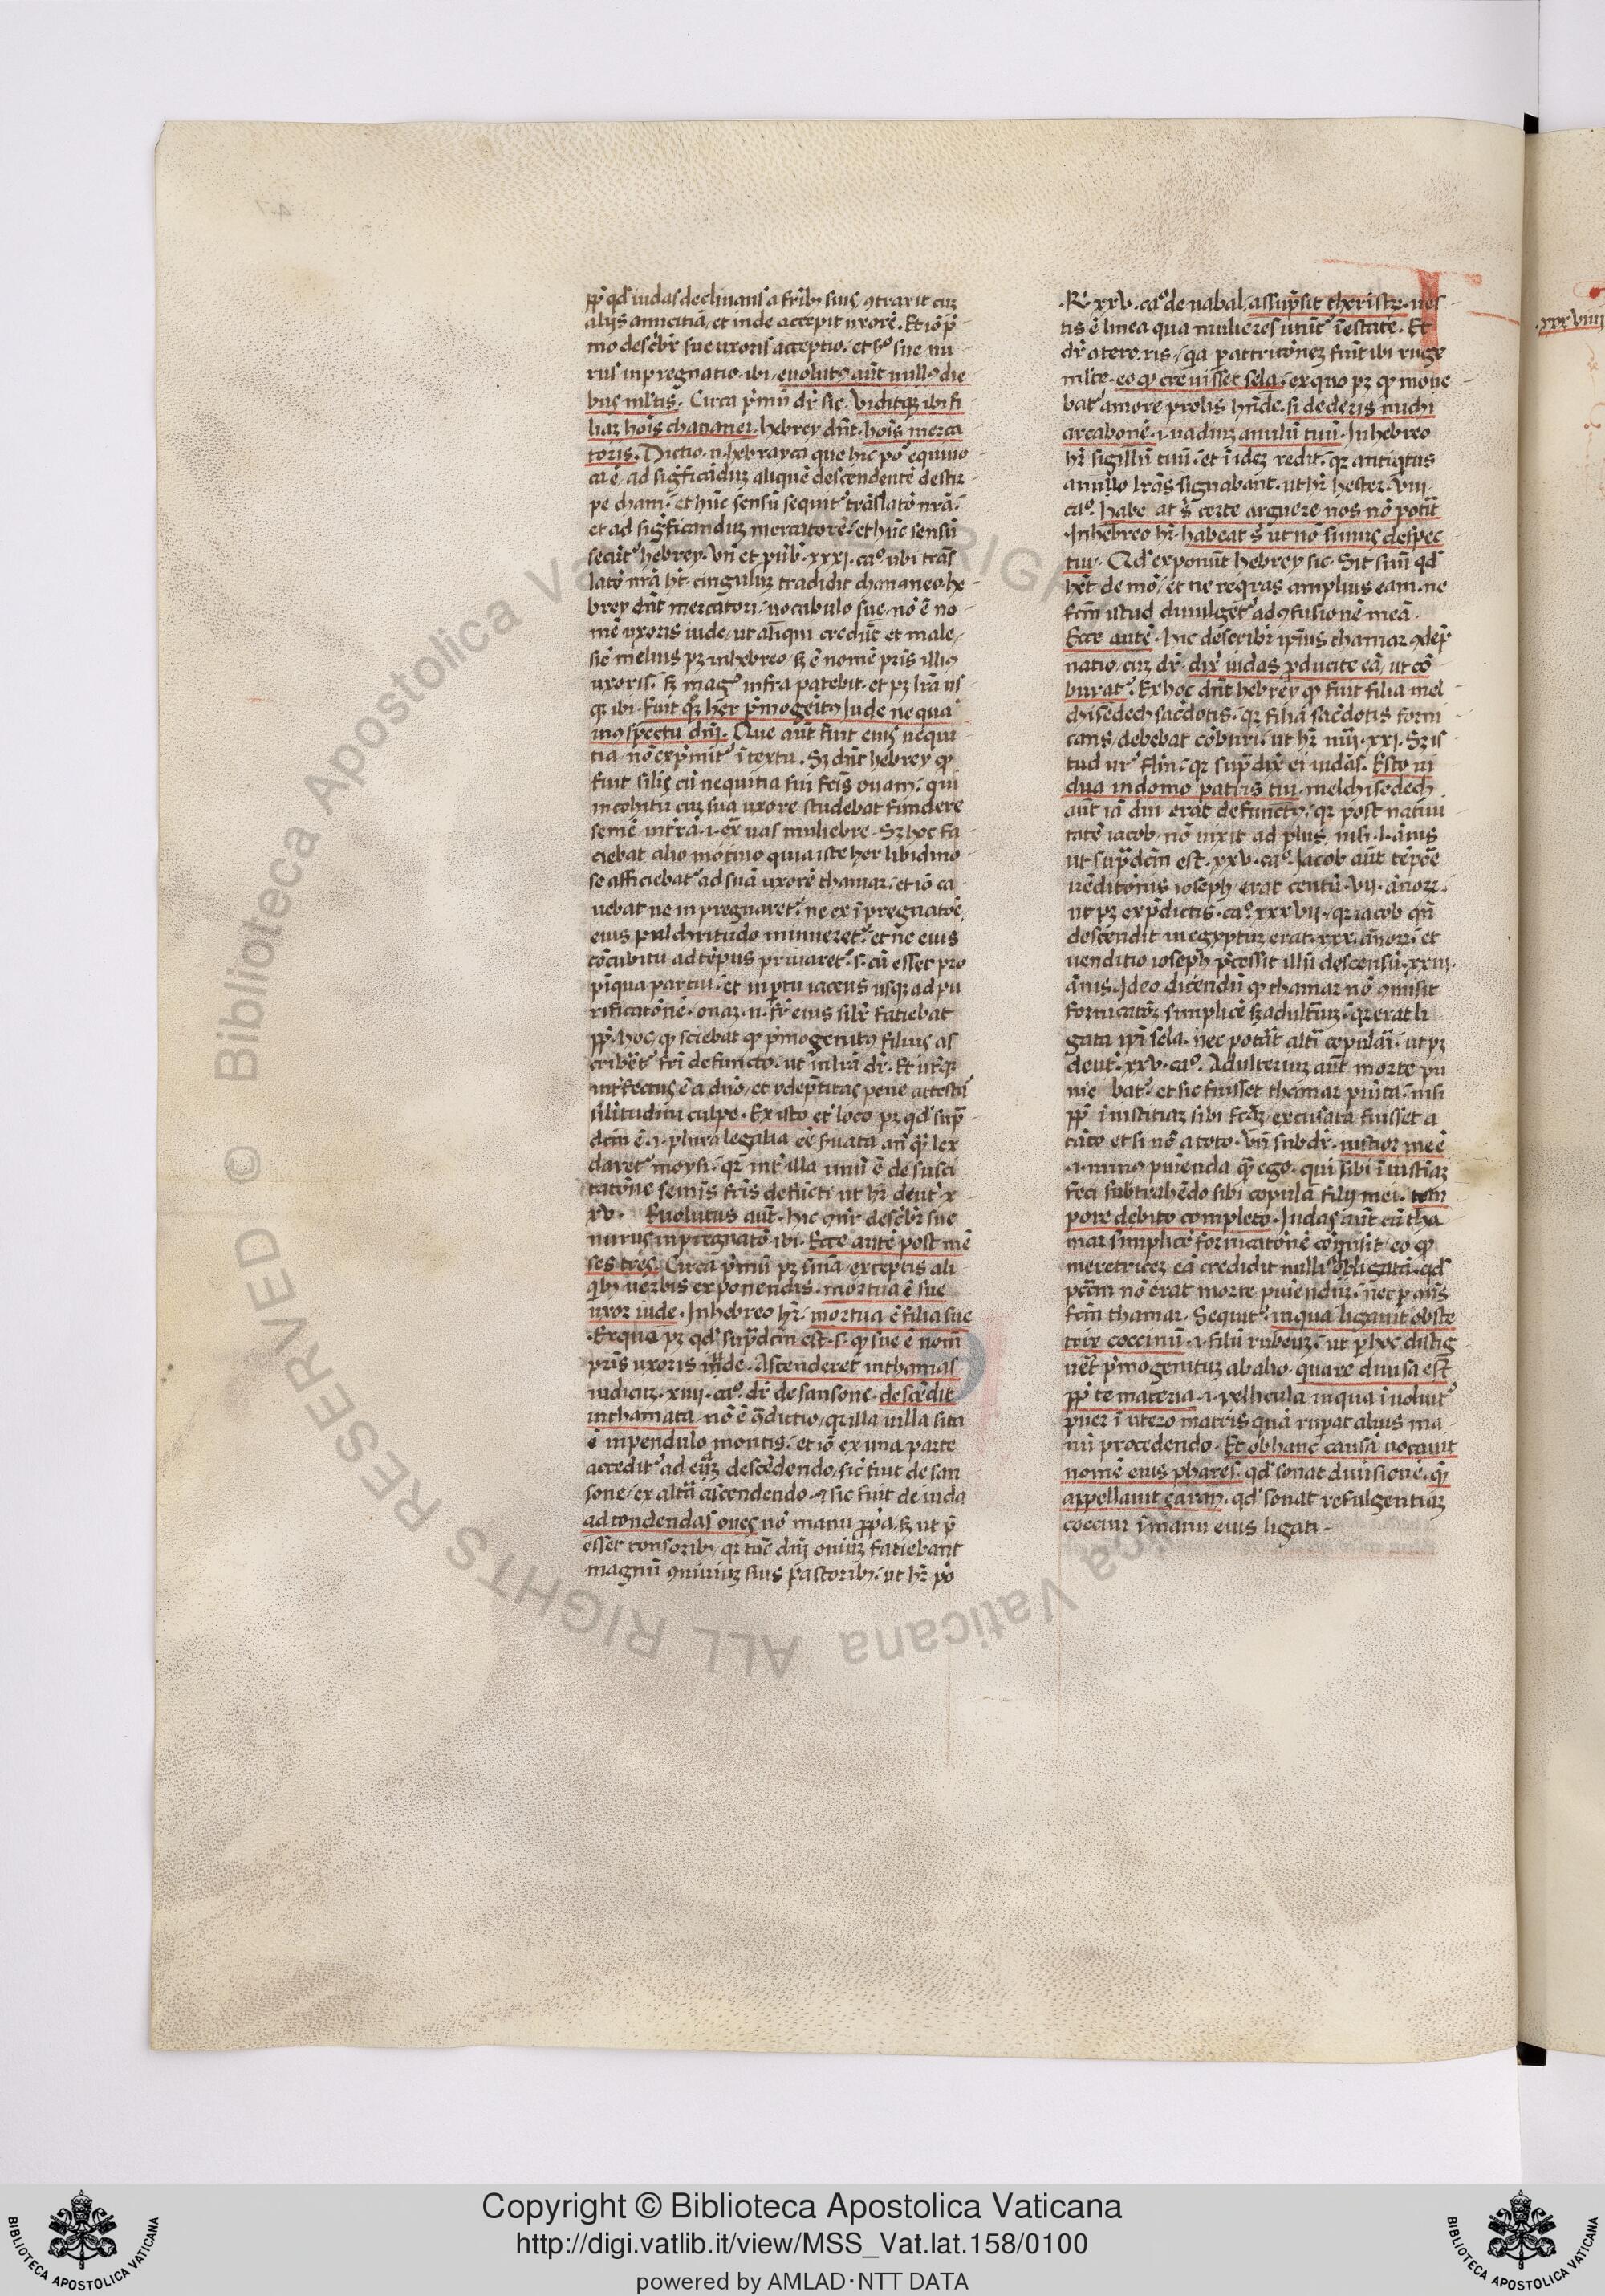 pp̄ qd' iudas declinans a frīb; suis ꝯtraxit cuȝ
alijs amicitiā, et inde accepit uxorē. Et iō p̄
mo descbr̄ sue uxoris acceptio. et 2o sue nu
rus inpregnatio. ibi, euolutꝰ aūt mult' die
bus mltis. Circa pͥmū dr̄ sic. Viditqȝ ibi fi
liaȝ hoīs chananei. hebrey dn̄t. hoīs merca
toris. Dictio .n. hebrayca que hic pōͭ equiuo
ca ē, ad sigͥficādūȝ aliquē descendentē de stir
pe cham. et hūc sensū sequitͬ trāslatō nrā.
et ad sigͥficandūȝ mercatorē. et hūc sensū
secūtͬ hebrey. Vn̄ et puͬb. xxxi. caº. ubi trās
latō nrā ht̄. cingulūȝ tradidit chananeo. he
brey dn̄t mercatori. uocabulo sue. nō ē no
mē uxoris iude, ut aliqui credūt et male,
sic̄ melius pȝ in hebreo, sȝ ē nomē pr̄is illiꝰ
uxoris. sȝ magͥ infra patebit. et pȝ lrā us
qȝ ibi. fuit qͦȝ her pͥmogeītꝰ Jude nequā
in ꝯspectu dn̄i. Que aūt fuit eius nequi
tia nō expͥmitͬ ī textu. Sȝ dn̄t hebrey qͦ
fuit silīs cū nequitia sui frīs onam. qui
in cohitu cuȝ sua uxore studebat fundere
semē in t̄rā .i. ex͂ uas muliebre. Sȝ hoc fa
ciebat alio motiuo quia iste her libidino
se afficiebatͬ ad suā uxorē thamar. et iō ca
uebat ne inpregnaretͬ. ne ex īpregnatōe
eius pulchritudo minueretͬ. et ne eius
cōcubitu ad tēpus priuaretͬ .s. cū esset pro
pīqua partui. et in ꝑtu iacens usqȝ ad pu
rificatōnē. onaȝ .n. fr̄ eius silr̄ fatiebat
pp̄ hoc, qͥ sciebat qͦ pͥmogenitꝰ filius as
cribetͬ fri defuncto. ut in lrā dr̄. Et utͬqȝ
intͬfectus ē a dn̄o, et ydeptitas pene attesta
silitudini culpe. Ex isto et̄ loco pȝ qd' supͣ
dcm ē .i. plura legalia eē ẜuata an̄ qͣ lex
daretͬ moysi. qȝ intͬ illa unū ē de susci
tatōne semīs frīs defūcti ut hr̄ deut. x
xv. Euolutus aūt. hic ꝯn̄r descbr̄ sue
nurus inpregnatō. ibi. Ecce autē post mē
ses tres. Circā pͥmū pȝ sn̄ia, exceptis ali
qͥb; uerbis exponendis. mortua ē sue
uxor iude. In hebreo hr̄. mortua ē filia sue
Ex qua pȝ qd' supͣdcm est .s. qͦ sue ē nom̄
pr̄is uxoris iude. Ascenderet in thamas
iudicuȝ. xiiij. caº. dr̄ de sansone. descēdit
in thamata. nō ē ꝯͣdictio, qȝ illa uilla sita
ē in pendulo montis. et iō ex una parte
acceditͬ ad euȝ descēdendo, sic̄ fuit de san
sone, ex altͣ ascendendo. ⁊ sic fuit de iuda
ad tondendas oues nō manu pp̄a, sȝ ut p̄
esset tonsorib;, qȝ tūc dn̄i ouiuȝ fatiebant
magnū ꝯuiuiuȝ suis pastorib;. ut hr̄ pͦ
.R. xxv. caº. de nabal, assūpsit theristrȝ. ues
tis ē linea qua mulieres utūtͬ ī estate. Et
dr̄ a tero. ris, qͣ ꝑ attritōnez fiūt ibi ruge
mlte. eo qͦ creuisset sela. ex quo pȝ qͦ moue
batͬ amore prolis hn̄de. si dederis michi
arcabonē .i. uadiuȝ anulū tuū. In hebreo
hr̄ sigillū tuū. et ī idez redit. qȝ antiqitus
anulo lrās signabant. ut hr̄ hester. viii.
caº. habeat s̄ certe arguere nos nō potīt
In hebreo hr̄. habeat s̄ ut nō simus despec
tui. Qd' exponūt hebrey sic. Sit suū qd'
het de mō, et ne reqͥras amplius eam. ne
fcm istud diuulgetͬ ad ꝯfusionē meā.
Ecce autē. hic describr̄ ipius thamar ꝯdep̄
natio, cuȝ dr̄. dix͂ iudas ꝓducite eā, ut cō
buratͬ. Ex hoc dn̄t hebrey qͦ fuit filia mel
chisedech saͨdotis. qȝ filia saͨdotis forni
cans, debebat cōburi. ut hr̄ nūi. xxi. Sȝ is
tud ur̄ flm̄. qȝ supͣ dix͂ ei iudas. Esto ui
dua in domo patris tui. melchisedech
aūt iā diu erat defunctꝰ. qȝ post natiui
tatē iacob, nō uixit ad plus, nisi .l. ānis
ut supͣdcm est. xxv. caº. Jacob aūt tēpōe
uēditōnis ioseph, erat centū .vii. ānoꝝ.
ut pȝ ex pͥdictis. caº. xxxvii. qȝ iacob qn̄
descendit in egyptuȝ erat. xxx. ānoꝝ. et
uenditio ioseph pͥcessit illū descensū. xxiii.
ānis. Ideo dicendū qͦ thamar nō ꝯmisit
fornicatōȝ simplicē sȝ adultͥuȝ. qȝ erat li
gata ipi sela. nec potͣt altͥ copulaī. ut pȝ
deut. xxv. caº. Adulteriuȝ aūt morte pu
nie batͬ. et sic fuisset thamar pūita. nisi
pp̄ īiustitiaȝ sibi fcaȝ, excusata fuisset a
tāto et si nō a toto. Vn̄ subdr̄. iustior me ē
.i. minꝰ puīenda qͣ ego. qui sibi īiustiaȝ
feci subtrahēdo sibi copulā filij mei. tem
pore debito completo. Judas aūt cū tha
mar simplicē fornicatōnē cōmisit, eo qͦ
meretricez eā credidit nulliꝰ obligatā. qd'
pctm nō erat morte puīendūȝ. nec ꝑ ꝯn̄s
fcm thamar. Sequitͬ. in qua ligauit obste
trix coccinū .i. filū rubeuȝ. ut ꝑ hoc distīg
ueͬt pͥmogenitūȝ ab alio. quare diuisa est
pp̄ te materia .i. pellicula in qua īuoluitͬ
puer ī utero matris quā rupat alius ma
nū procedendo. Et ob hanc causā uocauit
nomē eius phares. qd' sonat diuisionē. qͣ
appellauit zaran. qd' sonat refulgentiaȝ
coccini ī manu eius ligati.
.xxxviiii
Copyright © Biblioteca Apostolica Vaticana
http://digi.vatlib.it/view/MSS_Vat.lat.158/0100
powered by AMLAD·NTT DATA
BIBLIOTECA APOSTOLICA VATICANA
BIBLIOTECA APOSTOLICA VATICANA
© Biblioteca Apostolica Vaticana ALL RIGHTS RESERVED